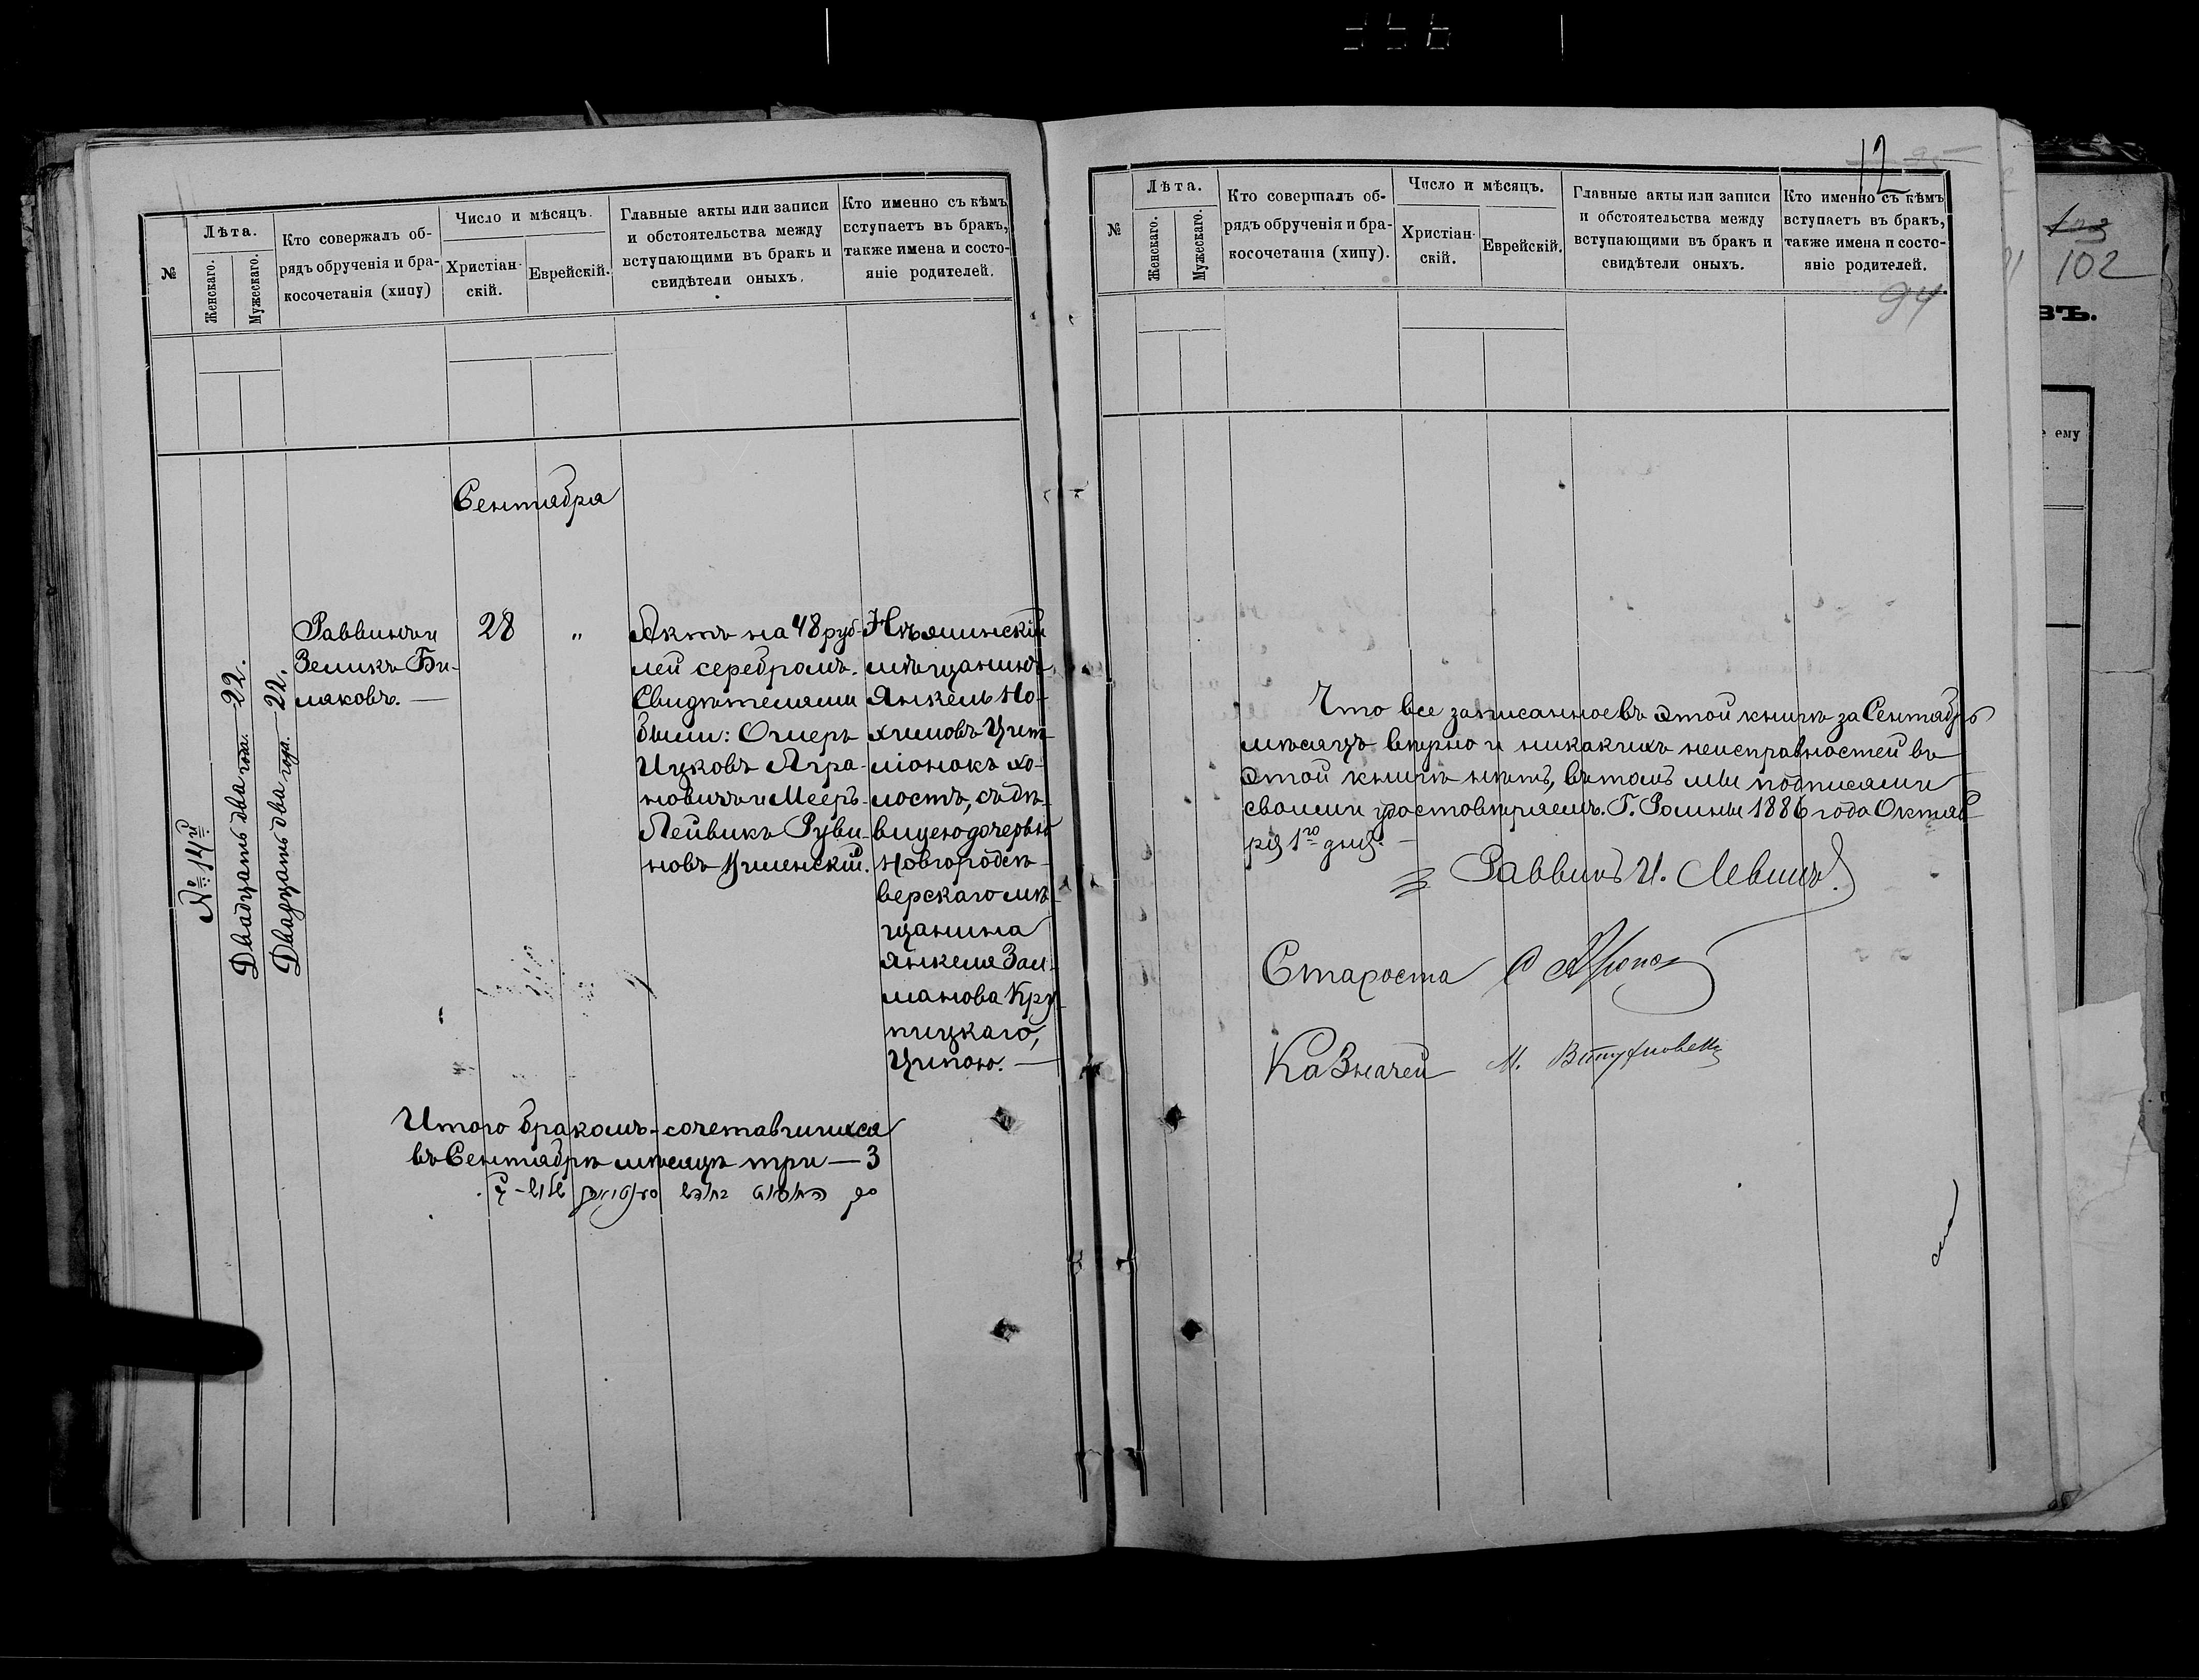 12
94
№
Лѣта.
Женскаго.
Мужескаго.
Кто совержалъ об-
рядъ обрученія и бра-
косочетанія (хипу)
Число и мѣсяцъ.
Христіан-
скій.
Еврейскій.
Главные акты или записи
и обстоятельства между
вступающими въ бракъ и
свидѣтели оныхъ.
Кто именно съ кѣмъ
вступаетъ въ бракъ,
также имена и состо-
яніе родителей.
Сентября
№ 14й
Двадцать два года. 22.
Двадцать два года. 22.
Раввинъ и
Зеликъ Би-
ляковъ.
28
"
Актъ на 48 руб-
лей серебромъ.
Свидѣтелями
были:
Ицковъ Агра-
новичъ и Мееръ-
Лейвикъ Руви-
новъ
Нѣжинскій
мѣщанинъ
Янкель Но-
химовъ Цит-
ліонокъ хо-
лостъ, съ дѣ-
вицею дочерью
Новгородсѣ-
верскаго мѣ-
щанина
Янкеля Зал-
манова Кру-
пицкаго,
Ципою.
Итого бракомъ-сочетавшихся
въ Сентябрѣ мѣсяцѣ три — 3
№
Лѣта.
Женскаго.
Мужескаго.
Кто совершалъ об-
рядъ обрученія и бра-
косочетанія (хипу).
Число и мѣсяцъ.
Христіан-
скій.
Еврейскій.
Главные акты или записи
и обстоятельства между
вступающими въ бракъ и
свидѣтели оныхъ.
Кто именно съ кѣмъ
вступаетъ въ бракъ,
также имена и состо-
яніе родителей.
Что все записанное въ этой книгѣ за Сентябрь
мѣсяцъ вѣрно и никакихъ неисправностей въ
этой книгѣ нѣтъ, въ томъ мы подписами
своими удостовѣряемъ. Г. Ромны 1886 года Октяб-
ря 1го дня.
Раввинъ И. Левинъ
Староста
Казначей М.
102
въ.
ему